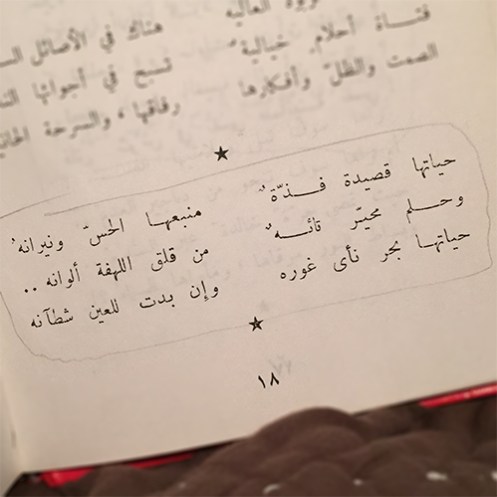 العاليه
فتاة أحلام خيالية هناك في الأصائل
الصمت والظلّ وأفكارها تسبح في أجوائها
رفاقها، والسرحة
★
حياتها قصيدة فذّةٌ منبعها الحسّ ونيرانهُ
وحلم محيّر تائهٌ من قلق اللهفة ألوانه ..
حياتها بحر نأى غوره وإن بدت للعين شطآنه
★
١٨